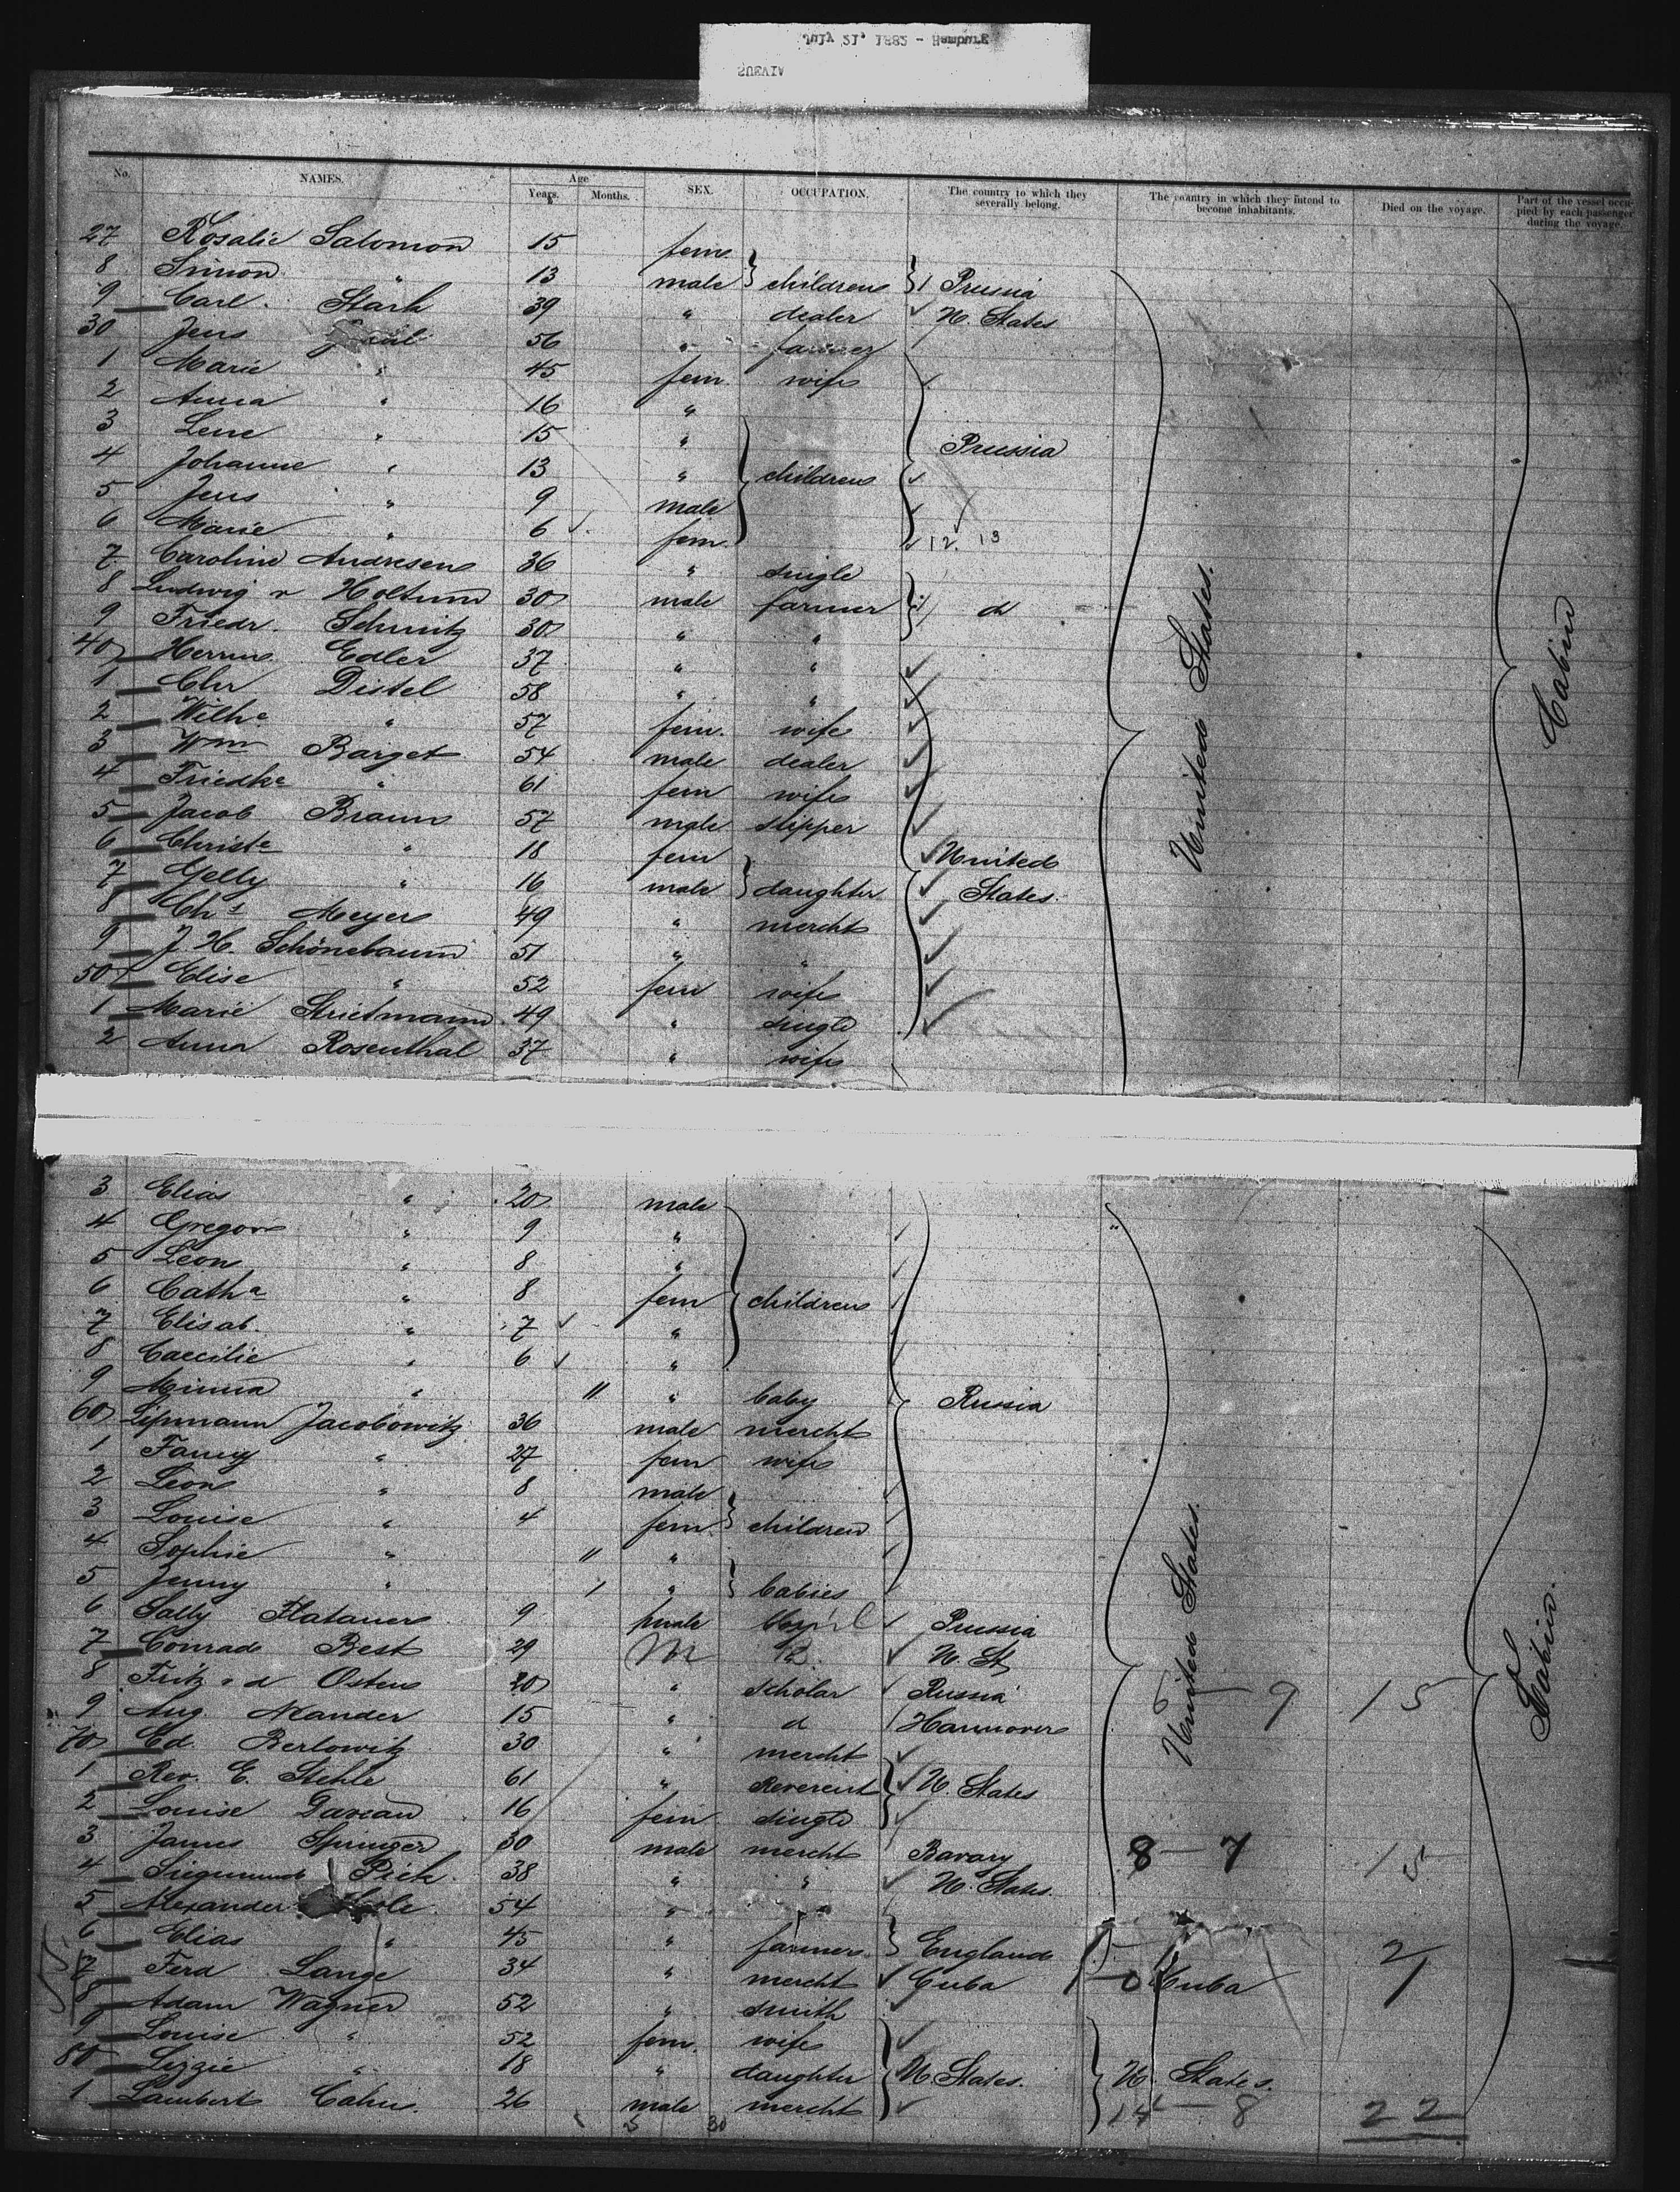 July 21, 1882 - Hamburg
SUEVIA
No. NAMES. Age Years. Months. SEX. OCCUPATION. The country to which they severally belong. The country in which they intend to become inhabitants. Died on the voyage. Part of the vessel occupied by each passenger during the voyage.
27 Rosalie Salomon 15 fem.
8 Simon " 13 male } children } Prussia
9 Carl Stark 39 " dealer U. States
30 Jens 56 " farmer
1 Marie " 45 fem. wife
2 Anna " 16 "
3 Lene " 15 " Prussia
4 Johanne " 13 " children
5 Jens " 9 male
6 Marie " 6 fem. 12. 13
7 Caroline Andresen 36 " single
8 Ludwig v Holtum 30 male farmer d
9 Friedr. Schmitz 30 " "
40 Herm. Edler 37 " "
1 Chr Distel 58 " "
2 Wilhe " 57 fem. wife
3 Wm Barget 54 male dealer
4 Friedke " 61 fem wife
5 Jacob Braun 57 male skipper
6 Christe " 18 fem United
7 Gelly " 16 male } daughter States.
8 Chs Meyer 49 " mercht
9 J. H. Schönebaum 51 " "
50 Elise " 52 fem wife
1 Marie Strietmann 49 " single
2 Anna Rosenthal 37 " wife
United States.
Cabin
3 Elias " 20 male
4 Gregor " 9 "
5 Leon " 8 "
6 Catha " 8 fem children
7 Elisab. " 7 "
8 Caecilie " 6 "
9 Minna " 11 " baby Russia
60 Lipmann Jacobowitz 36 male mercht
1 Fanny " 27 fem wife
2 Leon " 8 male
3 Louise " 4 fem. } children
4 Sophie " 11 "
5 Jenny " 1 " } babies
6 Sally Flatauer 9 Prussia
7 Conrad Best 29 M U. St
8 Fritz v d Osten 20 " scholar Russia 6 - 9 15
9 Aug Xander 15 " d Hannover
70 Ed. Berlowitz 30 " mercht
1 Rev. E. Stehle 61 " Reverent } U. States
2 Louise 16 fem single
3 James Springer 30 male mercht Bavary 8 - 7 15
4 Siegmund Pick 38 " " U. States.
5 Alexander 54 "
6 Elias " 45 " farmer } England
7 Ferd Lange 34 " mercht Cuba Cuba
8 Adam Wagner 52 " smith
9 Louise " 52 fem. wife
80 Lizzie " 18 " daughter U. States. U. States.
1 Lambert Cahn. 26 male mercht 14 - 8 22
United States.
Cabin.